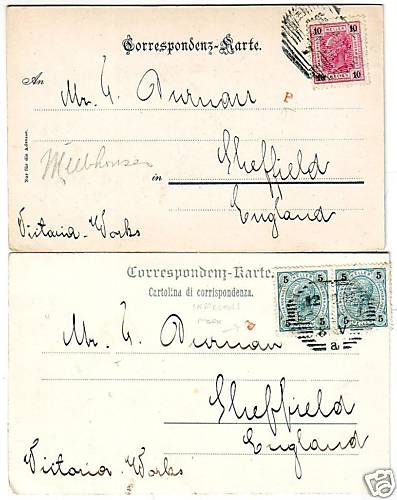 Correspondenz-Karte.
10 10
10 10
An
Mr. C. Durnan
P
Nur für die Adresse.
in
Sheffield
England
Victoria Works
Correspondenz-Karte.
Cartolina di corrispondenza.
5 5 5 5
12
a
Mr. C. Durnan
Sheffield
England
Victoria Works